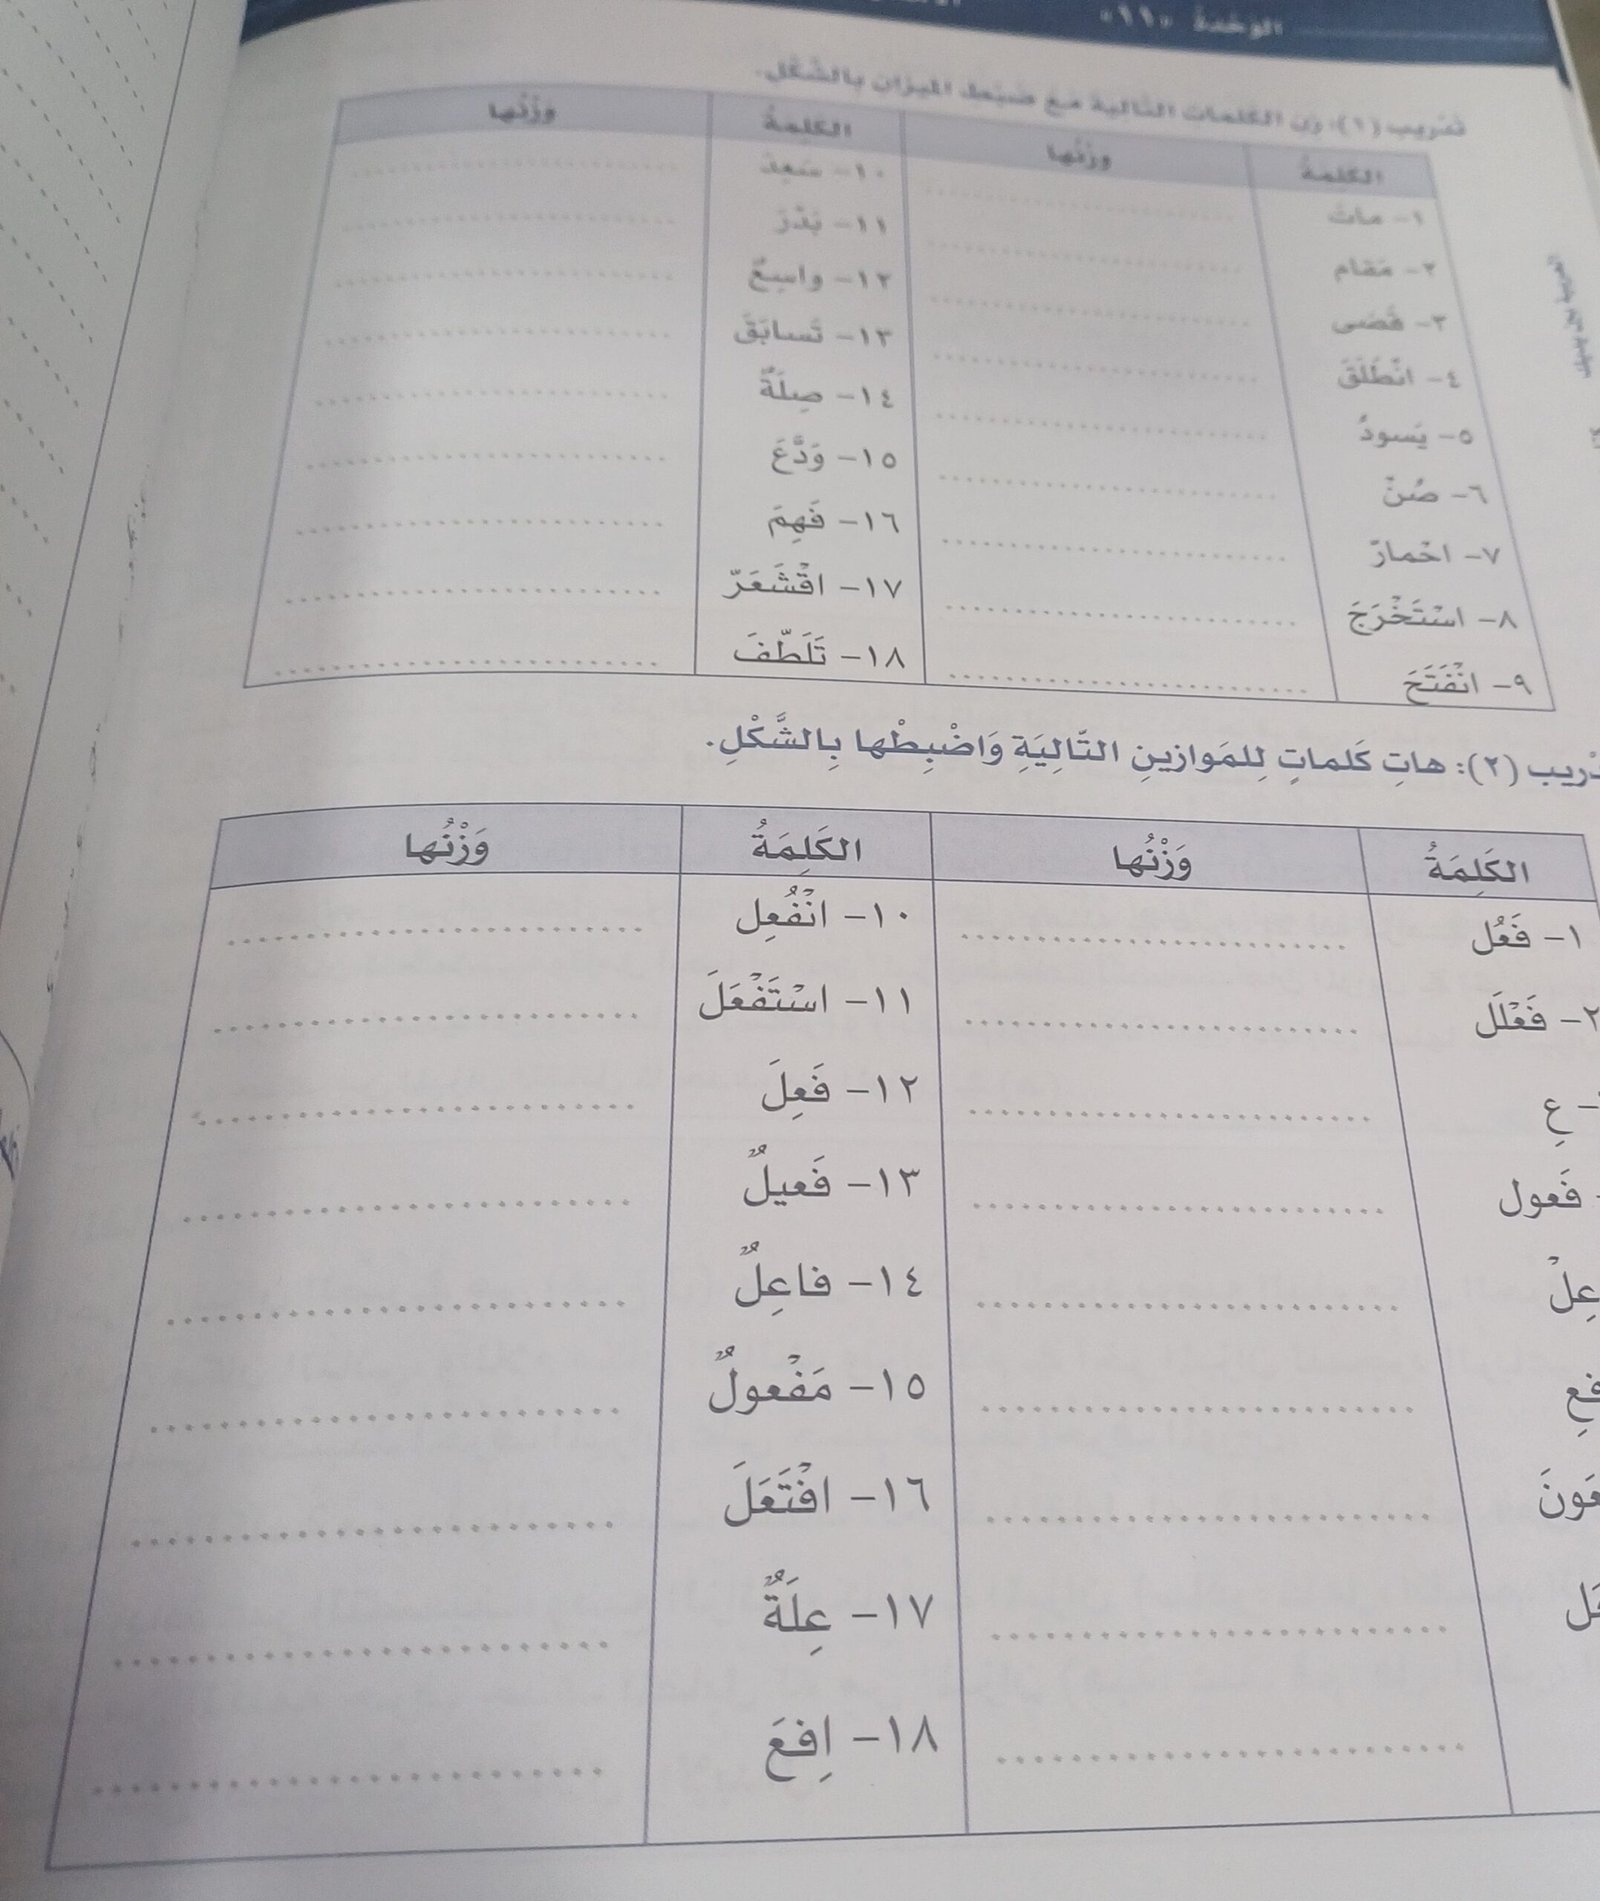 الوحدة «١١»
تدريب (١): زن الكلمات التالية مع ضبط الميزان بالشكل.
الكلمة وزنها الكلمة وزنها
١- مات ١٠- سعد
٢- مقام ١١- بذر
٣- قضى ١٢- واسعٌ
٤- انْطَلَقَ ١٣- تَسابَقَ
٥- يَسودُ ١٤- صِلَةٌ
٦- صُنْ ١٥- وَدَّعَ
٧- احْمارّ ١٦- فَهِمَ
٨- اسْتَخْرَجَ ١٧- اقْشَعَرّ
٩- انْفَتَحَ ١٨- تَلَطّفَ
دْريب (٢): هاتِ كَلماتٍ لِلمَوازينِ التّالِيَةِ وَاضْبِطْها بِالشَّكْلِ.
الكَلِمَةُ وَزْنُها الكَلِمَةُ وَزْنُها
١- فَعُل ١٠- انْفُعِل
٢- فَعْلَلَ ١١- اسْتَفْعَلَ
- عِ ١٢- فَعِلَ
- فَعول ١٣- فَعيلٌ
عِلْ ١٤- فاعِلٌ
فِعِ ١٥- مَفْعولٌ
عَونَ ١٦- افْتَعَلَ
١٧- عِلَةٌ
١٨- اِفِعَ